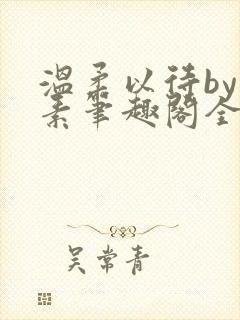 温柔以待by
素笔趣阁全
吴常青